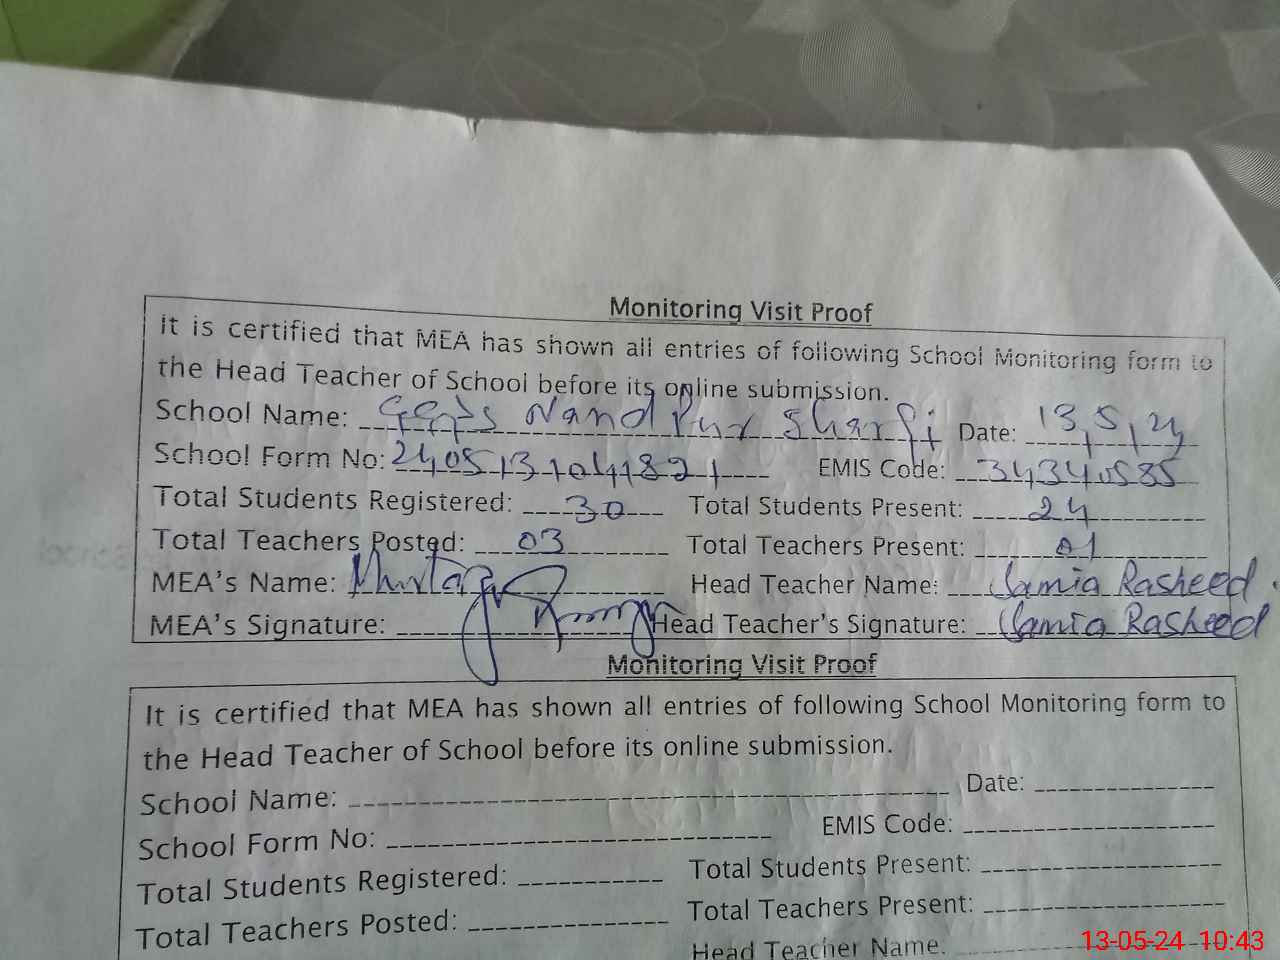 Monitoring Visit Proof
It is certified that MEA has shown all entries of following School Monitoring form to
the Head Teacher of School before its online submission.
School Name: GGPS Nand Pur Sharfi Date: 13,5,24
School Form No: 240513104182 EMIS Code: 34340585
Total Students Registered: 30 Total Students Present: 24
Total Teachers Posted: 03 Total Teachers Present: 01
MEA's Name: Head Teacher Name: Samia Rasheed
MEA's Signature: Head Teacher's Signature: Samia Rasheed
Monitoring Visit Proof
It is certified that MEA has shown all entries of following School Monitoring form to
the Head Teacher of School before its online submission.
School Name: Date:
School Form No: EMIS Code:
Total Students Registered: Total Students Present:
Total Teachers Posted: Total Teachers Present:
Head Teacher Name:
13-05-24 10:43